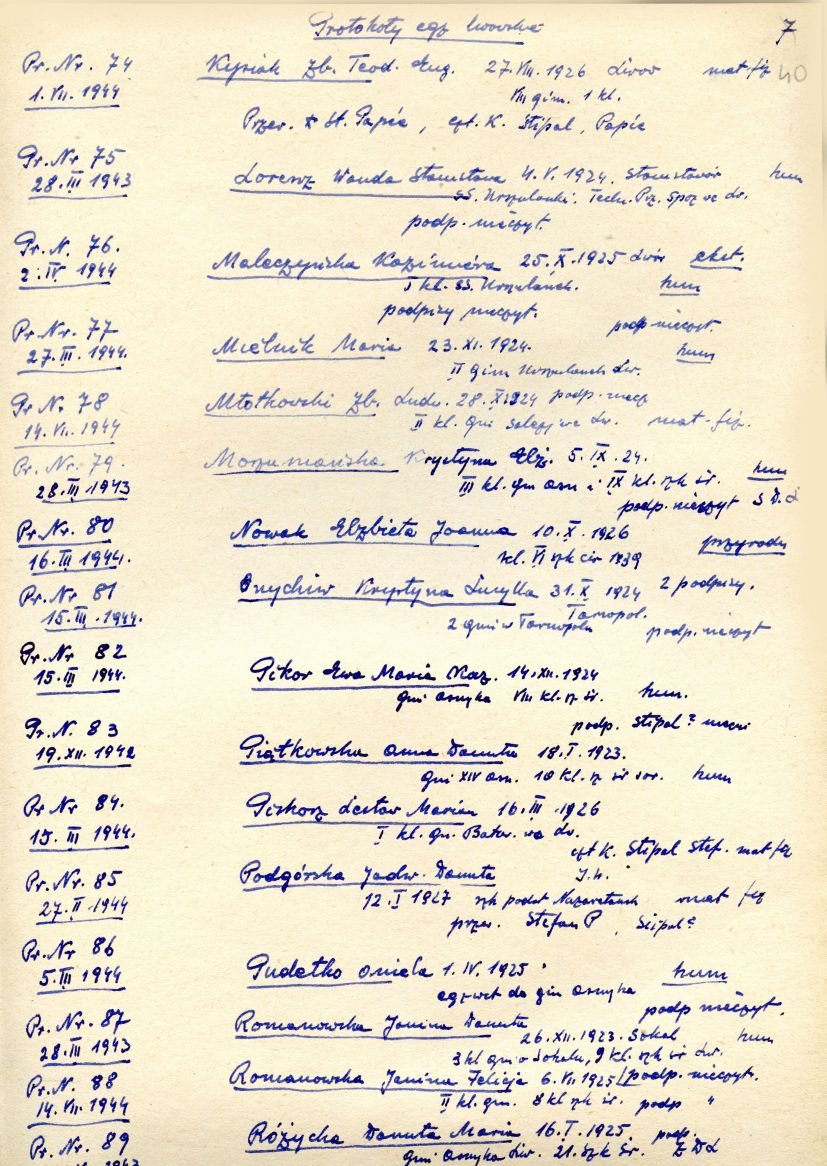 Protokoły egz lwowskie 7
40
Pr. Nr. 74 Kysiak Zb. Teod. Eug. 27.VII. 1926 Lwów mat-fiz
1. VII. 1944 VII gim. 1 kl.
Przew. St. Papée, czł. K. Stipal, Papée
Pr. Nr 75
28. III 1943 Lorenz Wanda Stanisława 4. V. 1924. Stanisławów hum
SS. Urszulanki. Techn. Prz. Spoż we Lw.
podp. nieczyt.
Pr. N. 76.
2. IV. 1944 Maleczyńska Kazimiera 25. X. 1925 Lwów ekst.
I kl. SS. Urszulanek. hum
podpisy nieczyt.
Pr. Nr. 77 podp nieczyt.
27. III. 1944. Mielnik Maria 23. XI. 1924. hum
II gim Urszulanek Lw.
Pr N. 78 Młotkowski Zb. Ludw. 28. X. 1924 podp. niecz
14. VI. 1944 II kl. gim salezj we Lw. mat-fiz.
Pr. Nr. 79. Krystyna Elż. 5. IX. 24.
28. III. 1943 III kl. gim i IX kl. szk śr. hum
podp. nieczyt
Pr. Nr. 80 Nowak Elżbieta Joanna 10. X. 1926
16. III 1944. kl. VI szk ćw 1939 przyrodn
Pr. Nr 81 Krystyna Lucylla 31. X 1924 2 podpisy.
15. III. 1944. Tarnopol.
2 gim w Tarnopolu podp. nieczyt
Pr. Nr 82
15. III 1944. Pikor Ewa Maria Kaz. 14. XII. 1924
gim Asnyka VIII kl. sz śr. hum.
podp. Stipal?
Pr. N. 83
19. XII. 1942 Piątkowska Anna Danuta 18. I. 1923.
gim XIV 10 kl. sz śr hum
Pr. Nr 84. Piskorz Lesław Marian 16. III 1926
15. III 1944. I kl. gim. Bator. we Lw.
czł K. Stipal Stef. mat-fiz
Pr. Nr. 85 Podgórska Jadw. Danuta
27. II 1944 12. I 1927 szk podst Nazaretanek mat fiz
przew. Stefan P, Stipal?
Pr. Nr 86
5. III 1944 Pudełko Aniela 1. IV. 1925 hum
do gim Asnyka
podp nieczyt.
Pr. Nr. 87 Romanowska Janina Danuta
28. III 1943 26. XII. 1923. Sokal hum
3 kl gim w Sokalu, 9 kl. szk śr Lw.
Pr. N. 88 Romanowska Janina Felicja 6. VII 1925 podp. nieczyt.
14. VII. 1944 II kl. gim. 8 kl szk śr. podp "
Pr. Nr. 89 Różycka Danuta Maria 16. I. 1925. podp.
gim Asnyka Lw. szk śr.